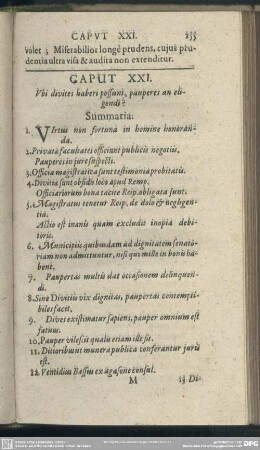 CAPVT XXI. 155
valet; Miserabilior longè prudens, cujus pru-
dentia ultra visa & audita non extenditur.
CAPUT XXI.
Vbi divites haberi possunt, pauperes an eli-
gendi?
Summaria:
1. VIrtus non fortuna in homine honoran-
da.
2. Privatæ facultates officiunt publicis negotiis,
Pauperes in jure suspecti.
3. Officia magistratica sunt testimonia probitatis.
4. Divitiæ sunt obsidis loco apud Remp.
Officiariorum bona tacitè Reip. obligata sunt.
5. Magistratus tenetur Reip. de dolo & negligen-
tia.
Actio est inanis quam excludit inopia debi-
toris.
6. Municipiis quibusdam ad dignitatem senato-
riam non admittuntur, nisi qui mille in bonis ha-
bent.
7. Paupertas multis dat occasionem delinquen-
di.
8. Sine Divitiis vix dignitas, paupertas contempti-
biles facit.
9. Dives existimatur sapiens, pauper omnium est
fatuus.
10. Pauper vilescit qualis etiam ille sit.
11. Ditioribus ut munera publica conferantur juris
est.
12. Ventidius Bassus ex agasone consul.
M 13 Di-